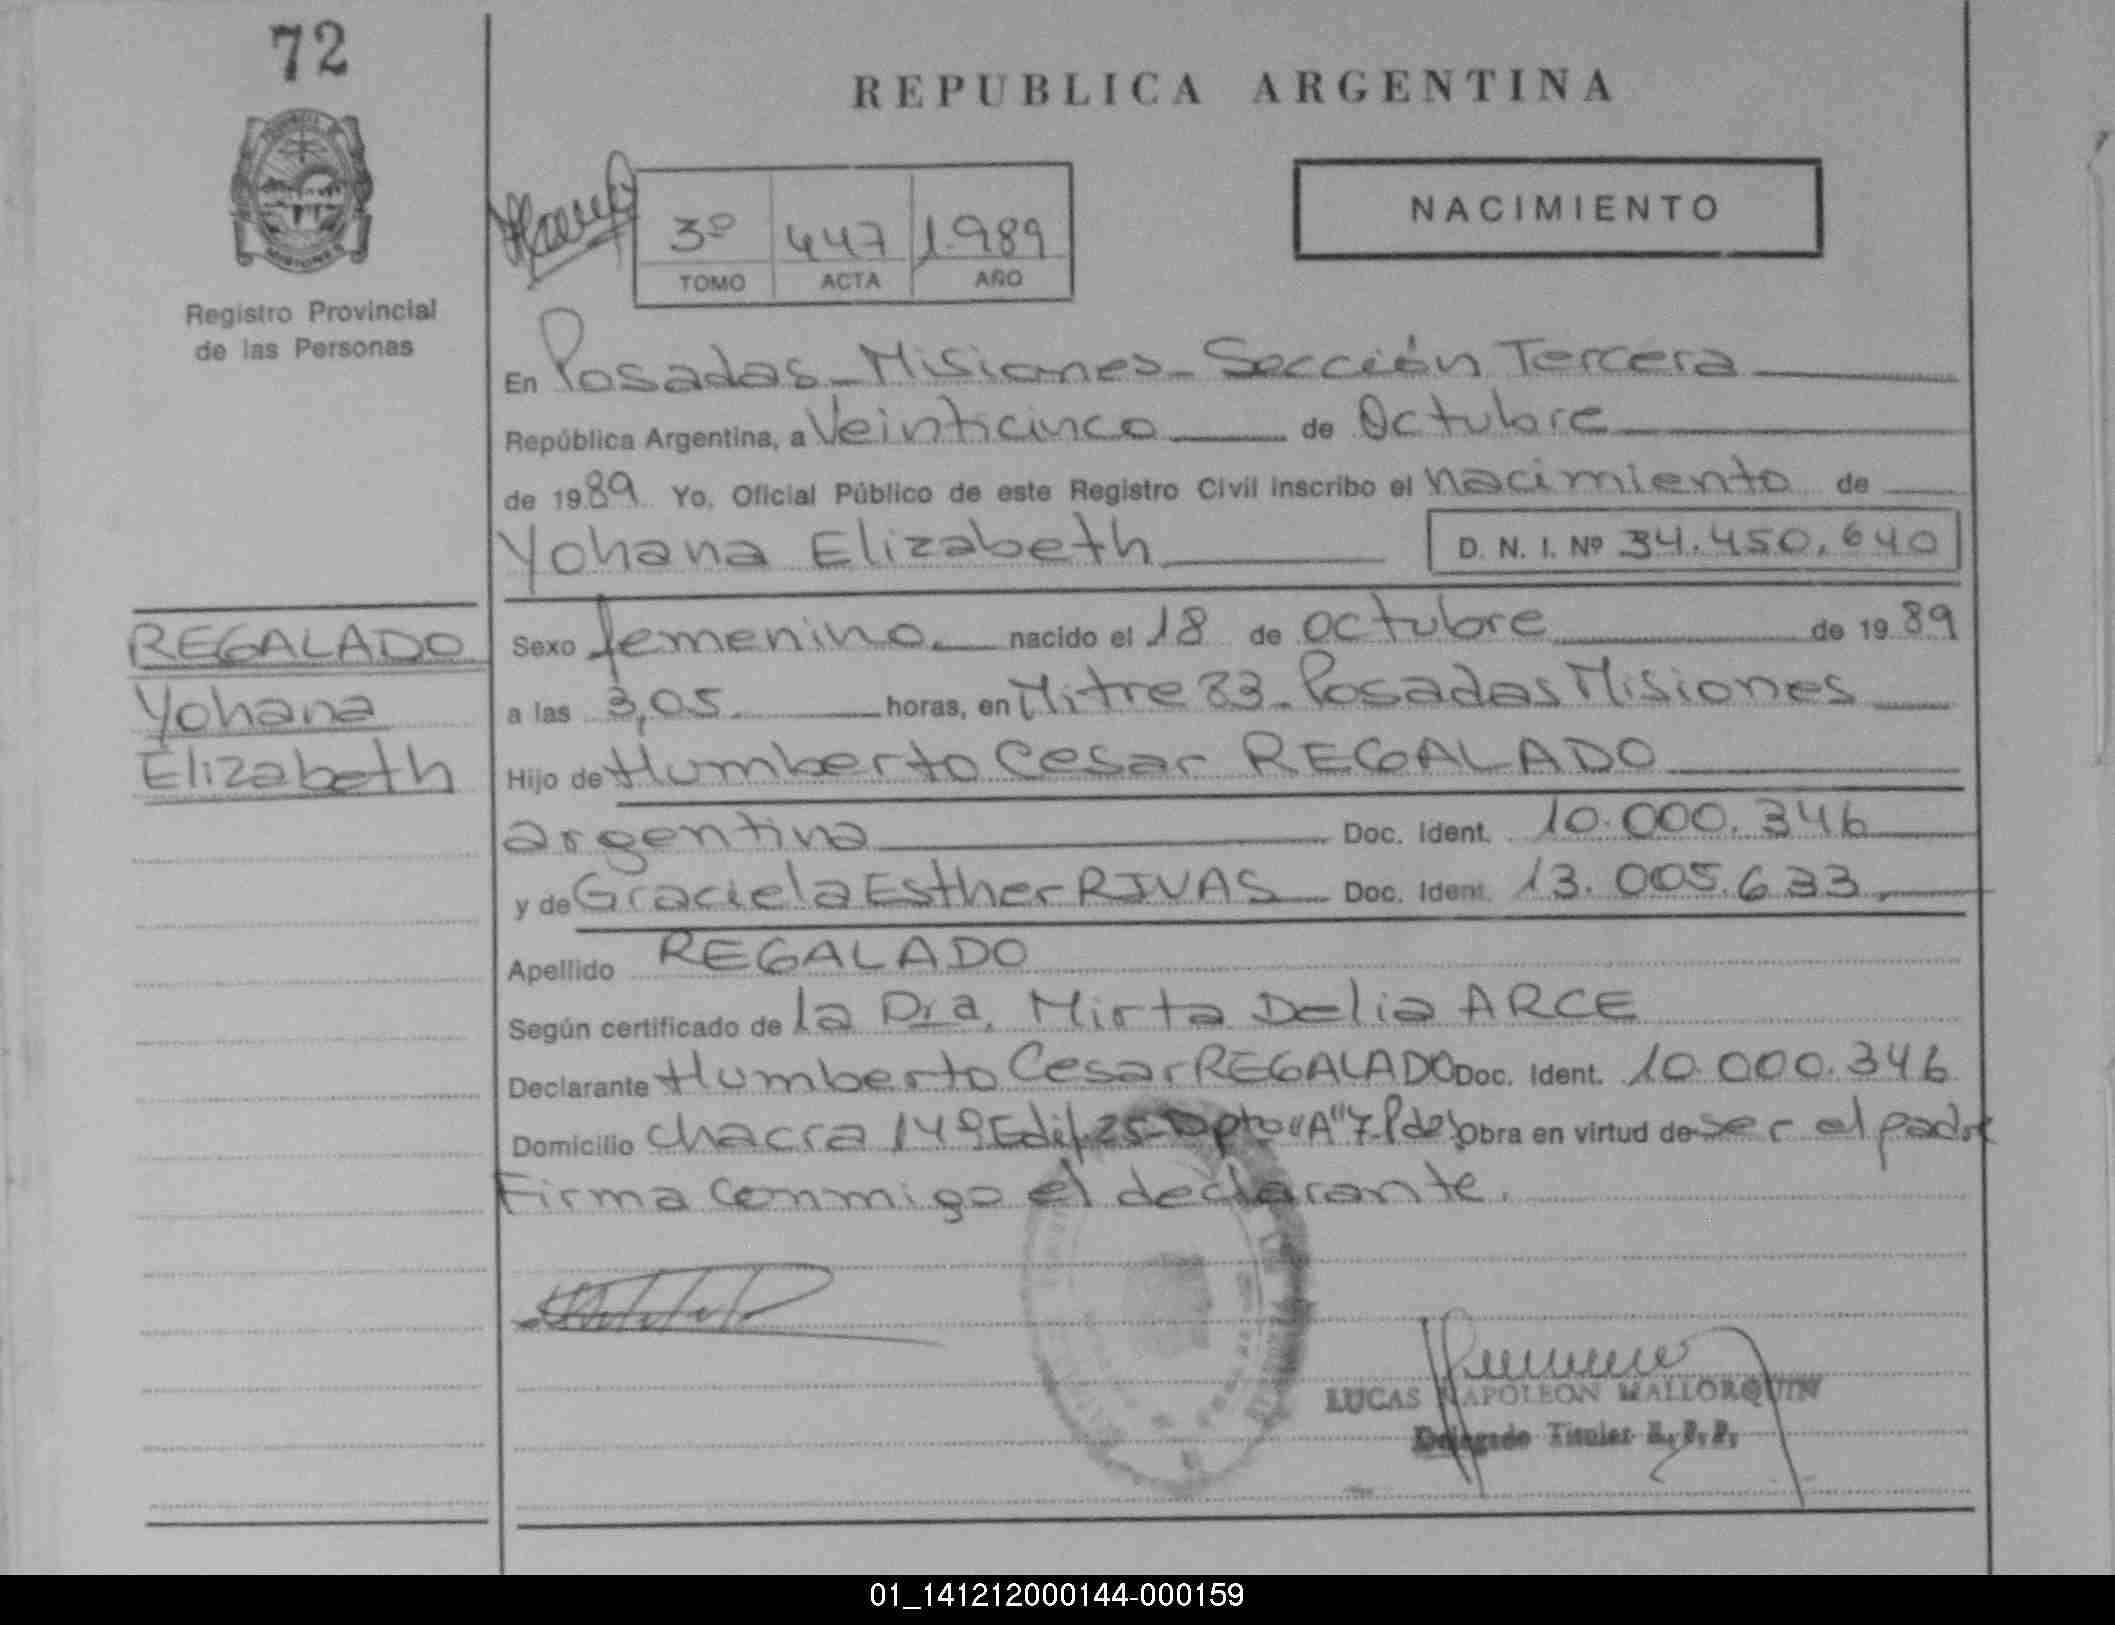 72
REPUBLICA ARGENTINA
Registro Provincial
de las Personas
3º 447 1.989
TOMO ACTA AÑO
NACIMIENTO
En Posadas - Misiones - Sección Tercera
República Argentina, a Veinticinco de Octubre
de 1989 Yo, Oficial Público de este Registro Civil inscribo el nacimiento de
Yohana Elizabeth D. N. I. Nº 34.450.640
REGALADO
Yohana
Elizabeth
Sexo femenino nacido el 18 de octubre de 1989
a las 3,05 horas, en Mitre 33 - Posadas Misiones
Hijo de Humberto Cesar REGALADO
argentina Doc. Ident. 10.000.346
y de Graciela Esther RIVAS Doc. Ident. 13.005.633
Apellido REGALADO
Según certificado de la Dra. Mirta Delia ARCE
Declarante Humberto Cesar REGALADO Doc. Ident. 10.000.346
Domicilio chacra 149 Edif. 25 - Dpto "A" Obra en virtud de ser el padre
Firma conmigo el declarante.
LUCAS NAPOLEON MALLORQUIN
Delegado Titular R. P. P.
01_141212000144-000159